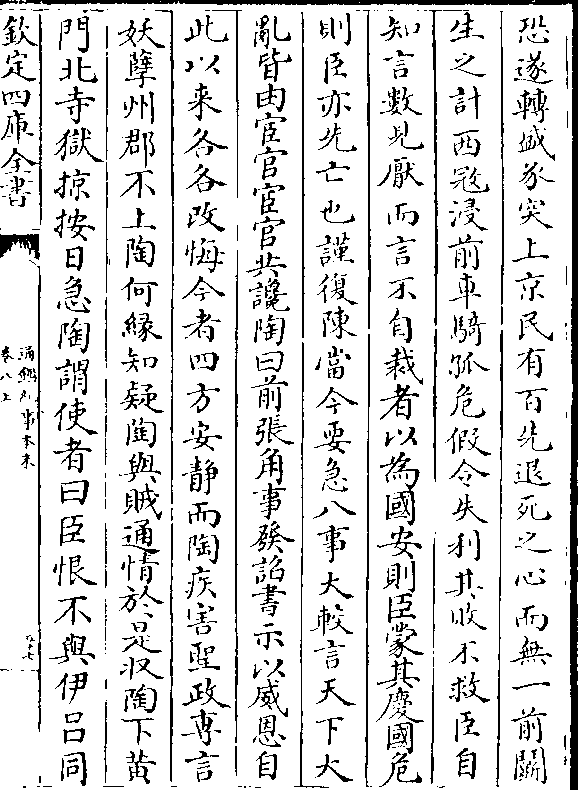 恐遂轉盛豕突上京民有百走退死之心而無一前鬭
生之計西冦浸前車騎孤危假令失利其敗不救臣自
知言數見厭而言不自裁者以為國安則臣蒙其慶國危
則臣亦先亡也謹復陳當今要急八事大較言天下大
亂皆由宦官宦官共讒陶曰前張角事發詔書示以威恩自
此以来各各改悔今者四方安靜而陶疾害聖政專言
妖孽州郡不上陶何緣知疑陶與賊通情於是収陶下黄
門北寺獄掠按日急陶謂使者曰臣恨不與伊吕同
欽定四庫全書
通鑑紀事本末
卷八上